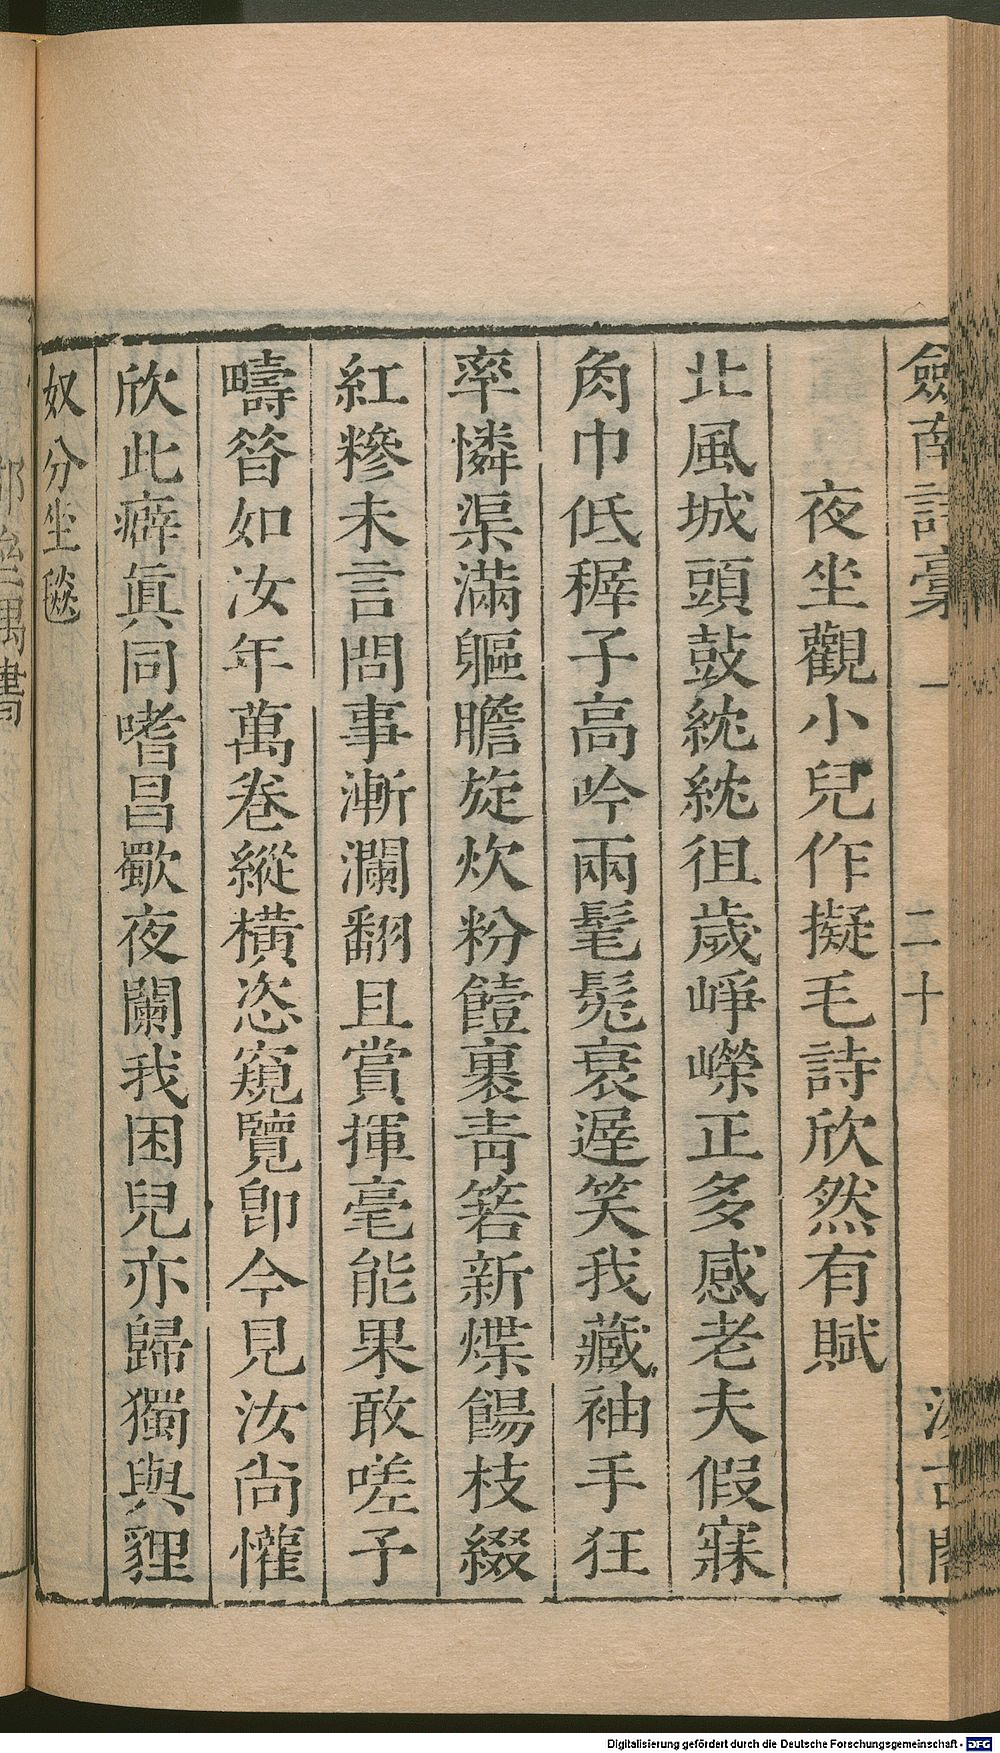 劍南詩藁 一 二十 汲古閣
夜坐觀小兒作擬毛詩欣然有賦
北風城頭鼓紞紞徂歲崢嶸正多感老夫假寐
角巾低稺子高吟兩髦髧衰遲笑我藏袖手狂
率憐渠滿軀瞻旋炊粉饐裹青箬新煠餳枝綴
紅糝未言問事漸瀾翻且賞揮毫能果敢嗟予
疇昝如汝年萬卷縱橫恣窺覽卽今見汝尙懽
欣此癖眞同嗜昌歜夜闌我困兒亦歸獨與貍
奴分坐毯
Digitalisierung gefördert durch die Deutsche Forschungsgemeinschaft - DFG